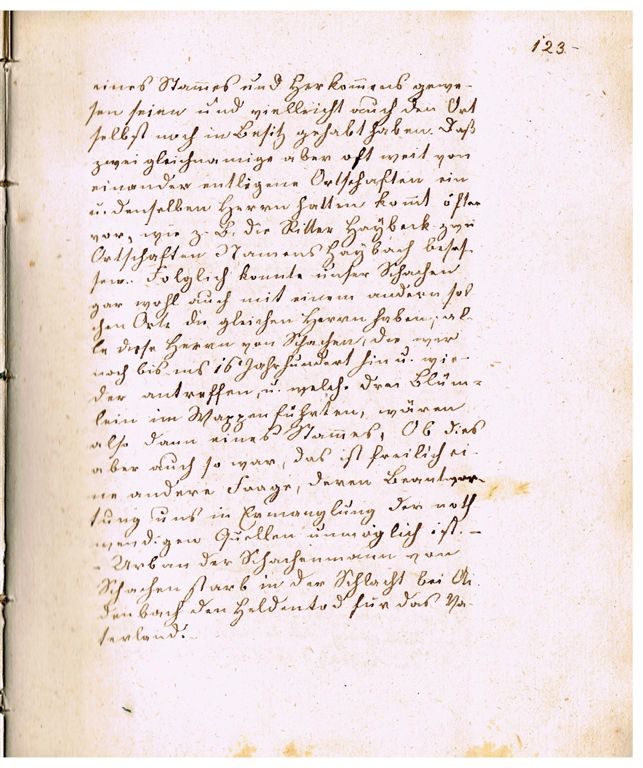 123-
eines Stam̅es und Herkom̅ens gewe-
sen seien und vielleicht auch den Ort
selbst noch in Besitz gehabt haben. Daß
zwei gleichnamige aber oft weit von
einander entligene Ortschaften ein
u. denselben Herrn hatten kom̅t öfter
vor, wie z. B. die Ritter Haÿbeck zwei
Ortschaften Namens Haÿbach beses-
sen. Folglich konnte unser Schachen
gar wohl auch mit einem andern sol
chen Orte die gleichen Herrn haben; al-
le diese Herrn von Schachen, die wir
noch bis ins 16 Jahrhundert hin u. wie-
der antreffen, u. welche drei Blüm-
lein im Wappen führten, wären
also dann eines Stam̅es, Ob dies
aber auch so war, das ist freilich ei-
ne andere Fraage, deren Beantwor-
tung uns in Ermanglung der noth
wendigen Quellen unmöglich ist. -
- Urban der Schachenmann von
Schachen starb in der Schlacht bei Ai-
denbach den Heldentod für das Va-
terland.